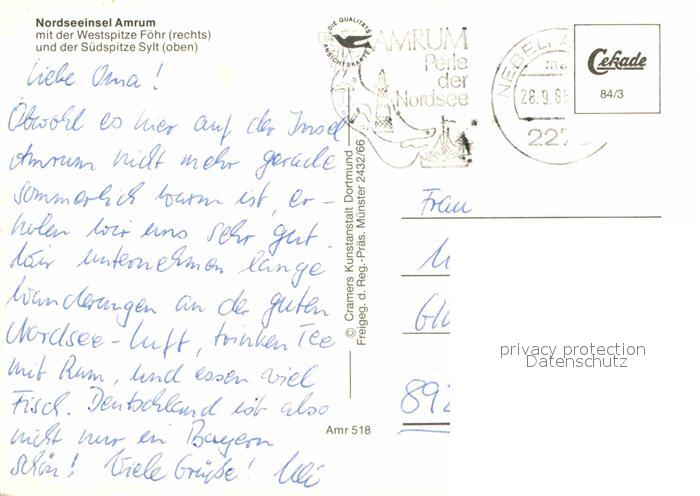 Nordseeinsel Amrum
mit der Westspitze Föhr (rechts)
und der Südspitze Sylt (oben)
Liebe Oma!
Obwohl es hier auf der Insel
Amrum nicht mehr gerade
sommerlich warm ist, er-
holen wir uns sehr gut.
Wir unternehmen lange
Wanderungen an der guten
Nordsee-Luft, trinken Tee
mit Rum, und essen viel
Fisch. Deutschland ist also
nicht nur in Bayern
schön! Viele Grüße! Uli
DIE QUALITÄTS
ANSICHTSKARTE
AMRUM
Perle
der
Nordsee
NEBEL, A
28.9.8
227
Cekade
84/3
© Cramers Kunstanstalt Dortmund
Freigeg. d. Reg.-Präs. Münster 2432/66
Amr 518
Frau
892
privacy protection
Datenschutz